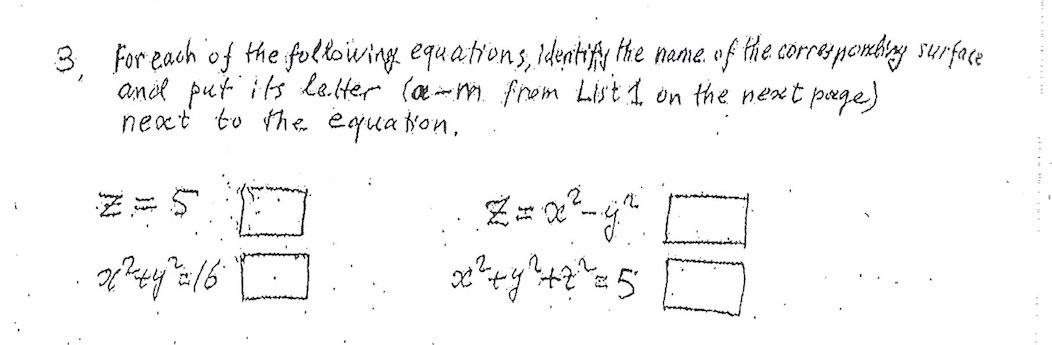 3. For each of the following equations, identify the name of the corresponding surface
and put its letter (a-m from List 1 on the next page)
next to the equation.
z = 5 z = x² - y²
x² + y² = 16 x² + y² + z² = 5